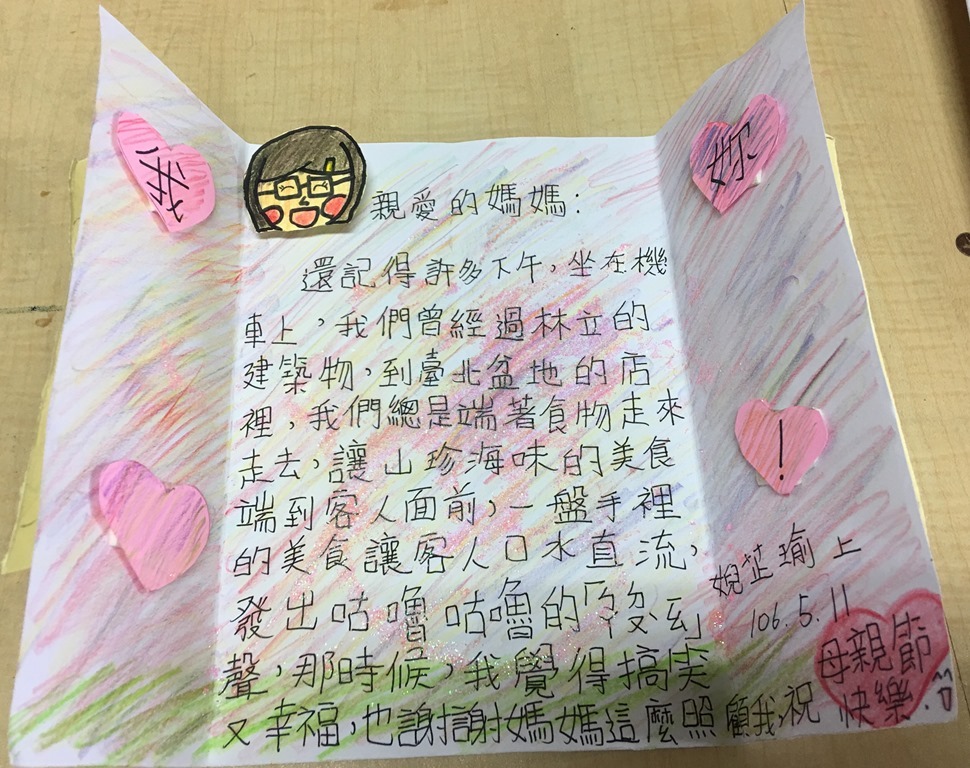 我
妳
！
親愛的媽媽：
還記得許多下午，坐在機
車上，我們曾經過林立的
建築物，到臺北盆地的店
裡，我們總是端著食物走來
走去，讓山珍海味的美食
端到客人面前，一盤手裡
的美食讓客人口水直流，
發出咕嚕咕嚕的「
聲，那時候，我覺得搞笑
又幸福，也謝謝媽媽這麼照顧我，祝
母親節
快樂.
芷瑜上
106.5.11